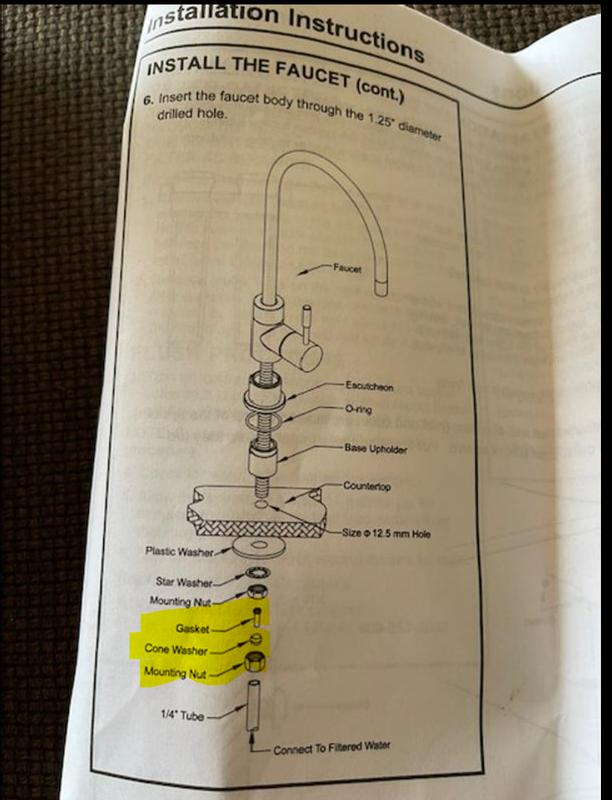 Installation Instructions
INSTALL THE FAUCET (cont.)
6. Insert the faucet body through the 1.25" diameter
drilled hole.
Faucet
Escutcheon
O-ring
Base Upholder
Countertop
Size Φ 12.5 mm Hole
Plastic Washer
Star Washer
Mounting Nut
Gasket
Cone Washer
Mounting Nut
1/4" Tube
Connect To Filtered Water